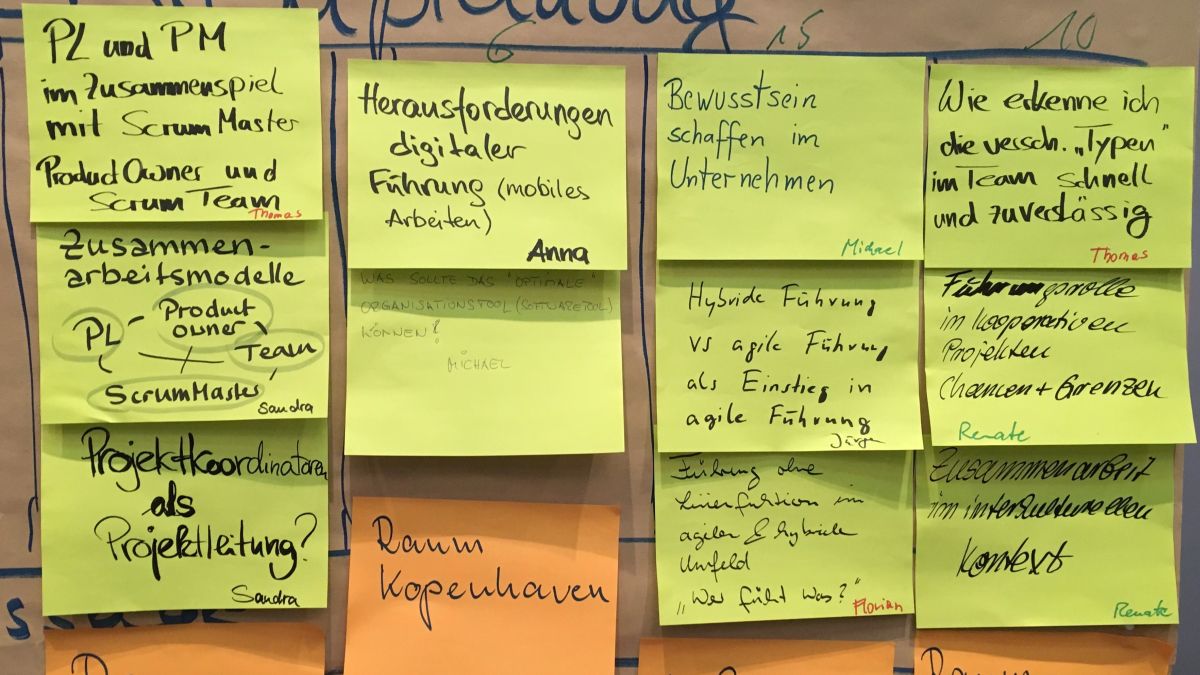 6
15
10
PL und PM
im Zusammenspiel
mit ScrumMaster
ProductOwner und
Scrum Team
Thomas
Zusammen-
arbeitsmodelle
Product
owner
PL
Team
ScrumMaster
Sandra
Projektkoordinatoren
als
Projektleitung?
Sandra
Herausforderungen
digitaler
Führung (mobiles
Arbeiten)
Anna
WAS SOLLTE DAS "OPTIMALE"
ORGANISATIONSTOOL (SOFTWARETOOL)
KÖNNEN?
MICHAEL
Raum
Kopenhaven
Bewusstsein
schaffen im
Unternehmen
Michael
Hybride Führung
vs agile Führung
als Einstieg in
agile Führung
Jürgen
Führung ohne
Linienfunktion im
agilen & hybride
Umfeld
„Wer führt was?"
Florian
Wie erkenne ich
die versch. „Typen"
im Team schnell
und zuverlässig
Thomas
Führungsrolle
im kooperativen
Projekten
Chancen + Grenzen
Renate
Zusammenarbeit
im interkulturellen
Kontext
Renate